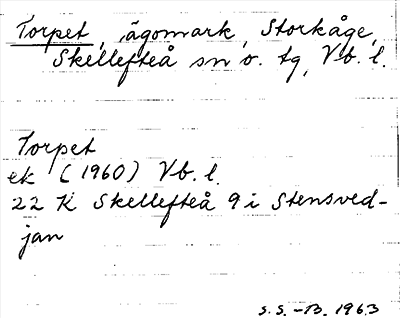 Torpet, ägomark, Storkåge,
Skellefteå sn o. tg, Vb. l.
Torpet
ek (1960) Vb. l.
22 K Skellefteå 9 i Stensved-
jan
S.S.-B. 1963